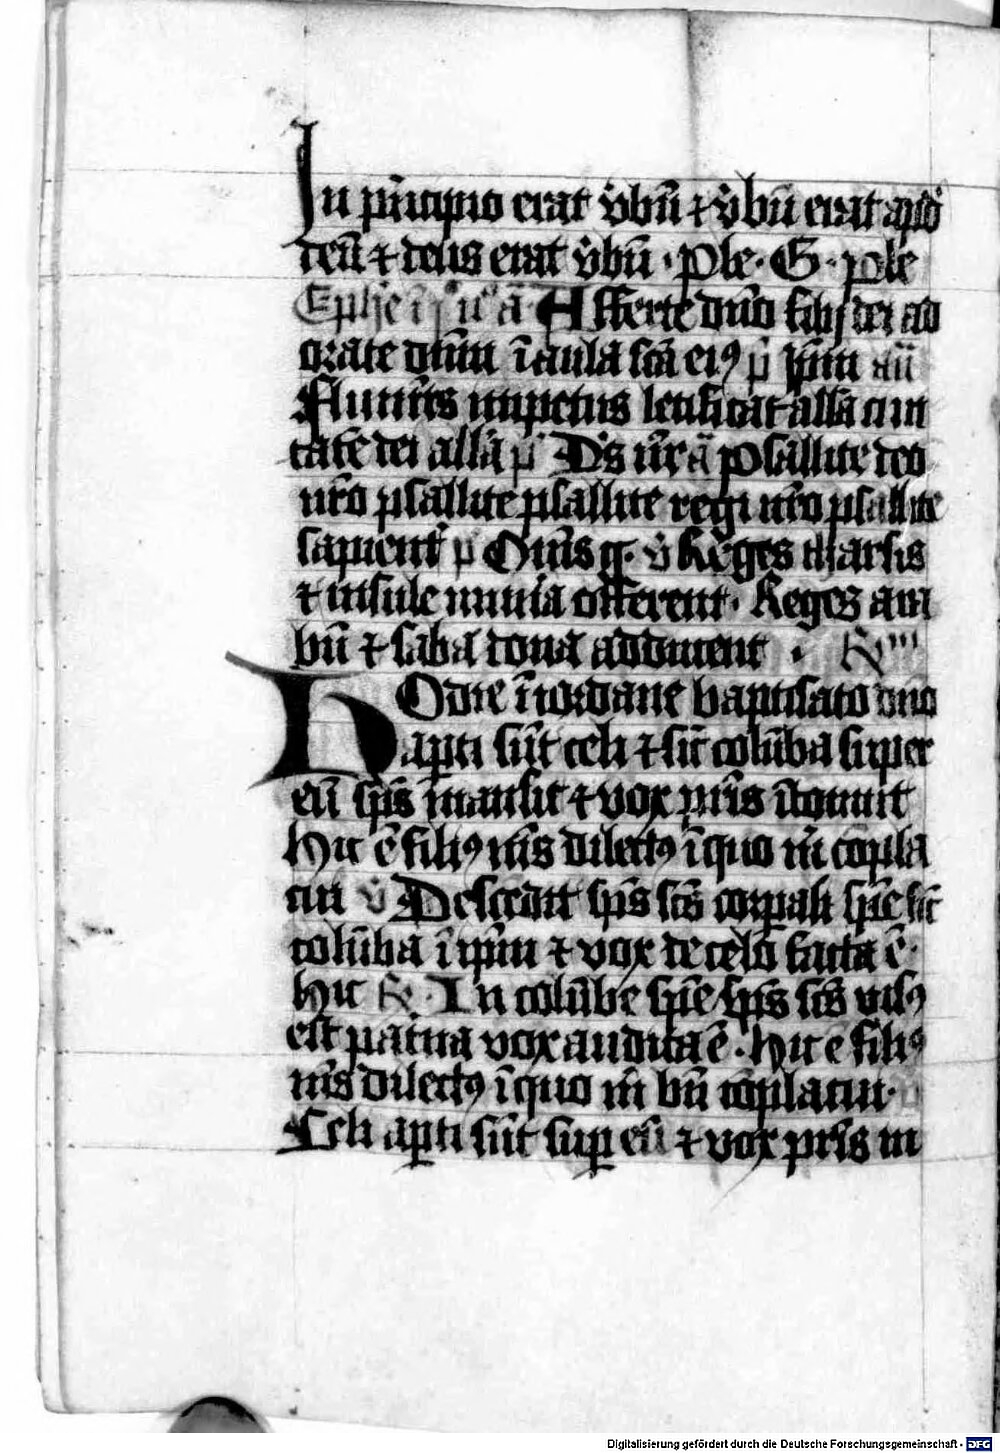 In pⁿncipio erat v̾bū ⁊ v̾bū erat apd̾
deū ⁊ deus erat v̾bū · ple · G · ple
Afferte dno filij dei ad
orate dnm ī aula scā eiꝰ p̄ ipm̄ añ
Flumīs impetus letificat allā ciui
tatē dei allā p̄ Ds nr̄ā psallite deo
nro psallite psallite regi nro psallite
sapient̾ p̄ Omīs g. v̾ Reges tharsis
⁊ insule munia offerent · Reges ara
bū ⁊ saba dona adducent · ꝶ
Hodie ī iordane baptisato dno
apti sūt celi ⁊ sic̄ colūba super
eū sps̄ māsit ⁊ vox pr̄is ītonuit
Hic ē filiꝰ mēs dilectꝰ ī quo m̄ cōpla
cui v̾ Descēdit sps̄ scs̄ corpali spē sic̄
colūba ī ipm̄ ⁊ vox de celo facta ē ·
Hic ꝶ · In colūbe spē sps̄ scs̄ visꝰ
est pat̾na vox audita ē · Hic ē filiꝰ
mēs dilectꝰ ī quo m̄ bn̄ cōplacui ·
Celi apti sūt sup eū ⁊ vox pr̄is in
Digitalisierung gefördert durch die Deutsche Forschungsgemeinschaft - DFG